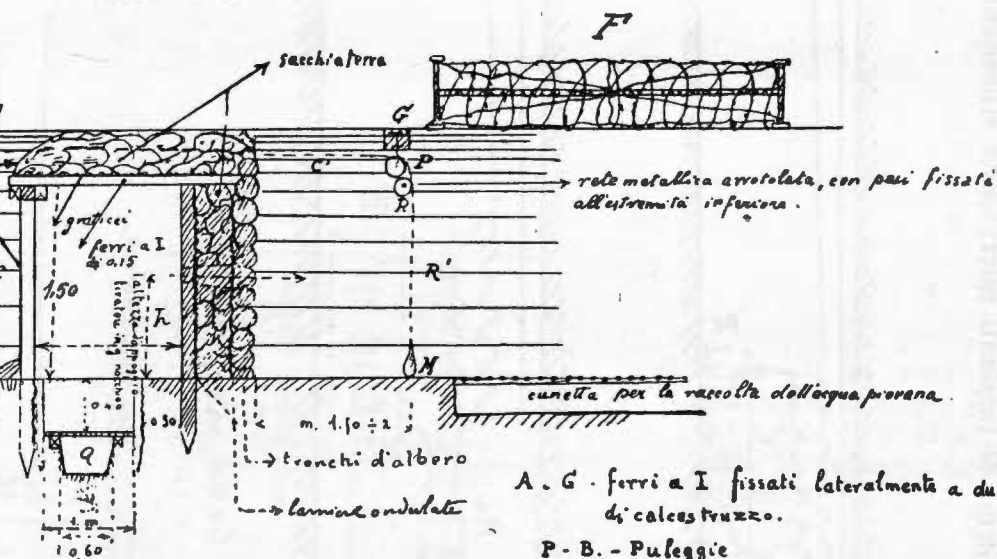 F
sacchiaterra
G
C'
P
R
rete metallica arrotolata, con pesi fissati
all'estremità inferiore.
graticci
ferri a I
di 0.15
1,50
h
R'
M
cunetta per la raccolta dell'acqua piovana.
0.50
m. 1.50 ÷ 2
Q
tronchi d'albero
lamiere ondulate
0.60
A. G. ferri a I fissati lateralmente a du
di calcestruzzo.
P - B. - Puleggie